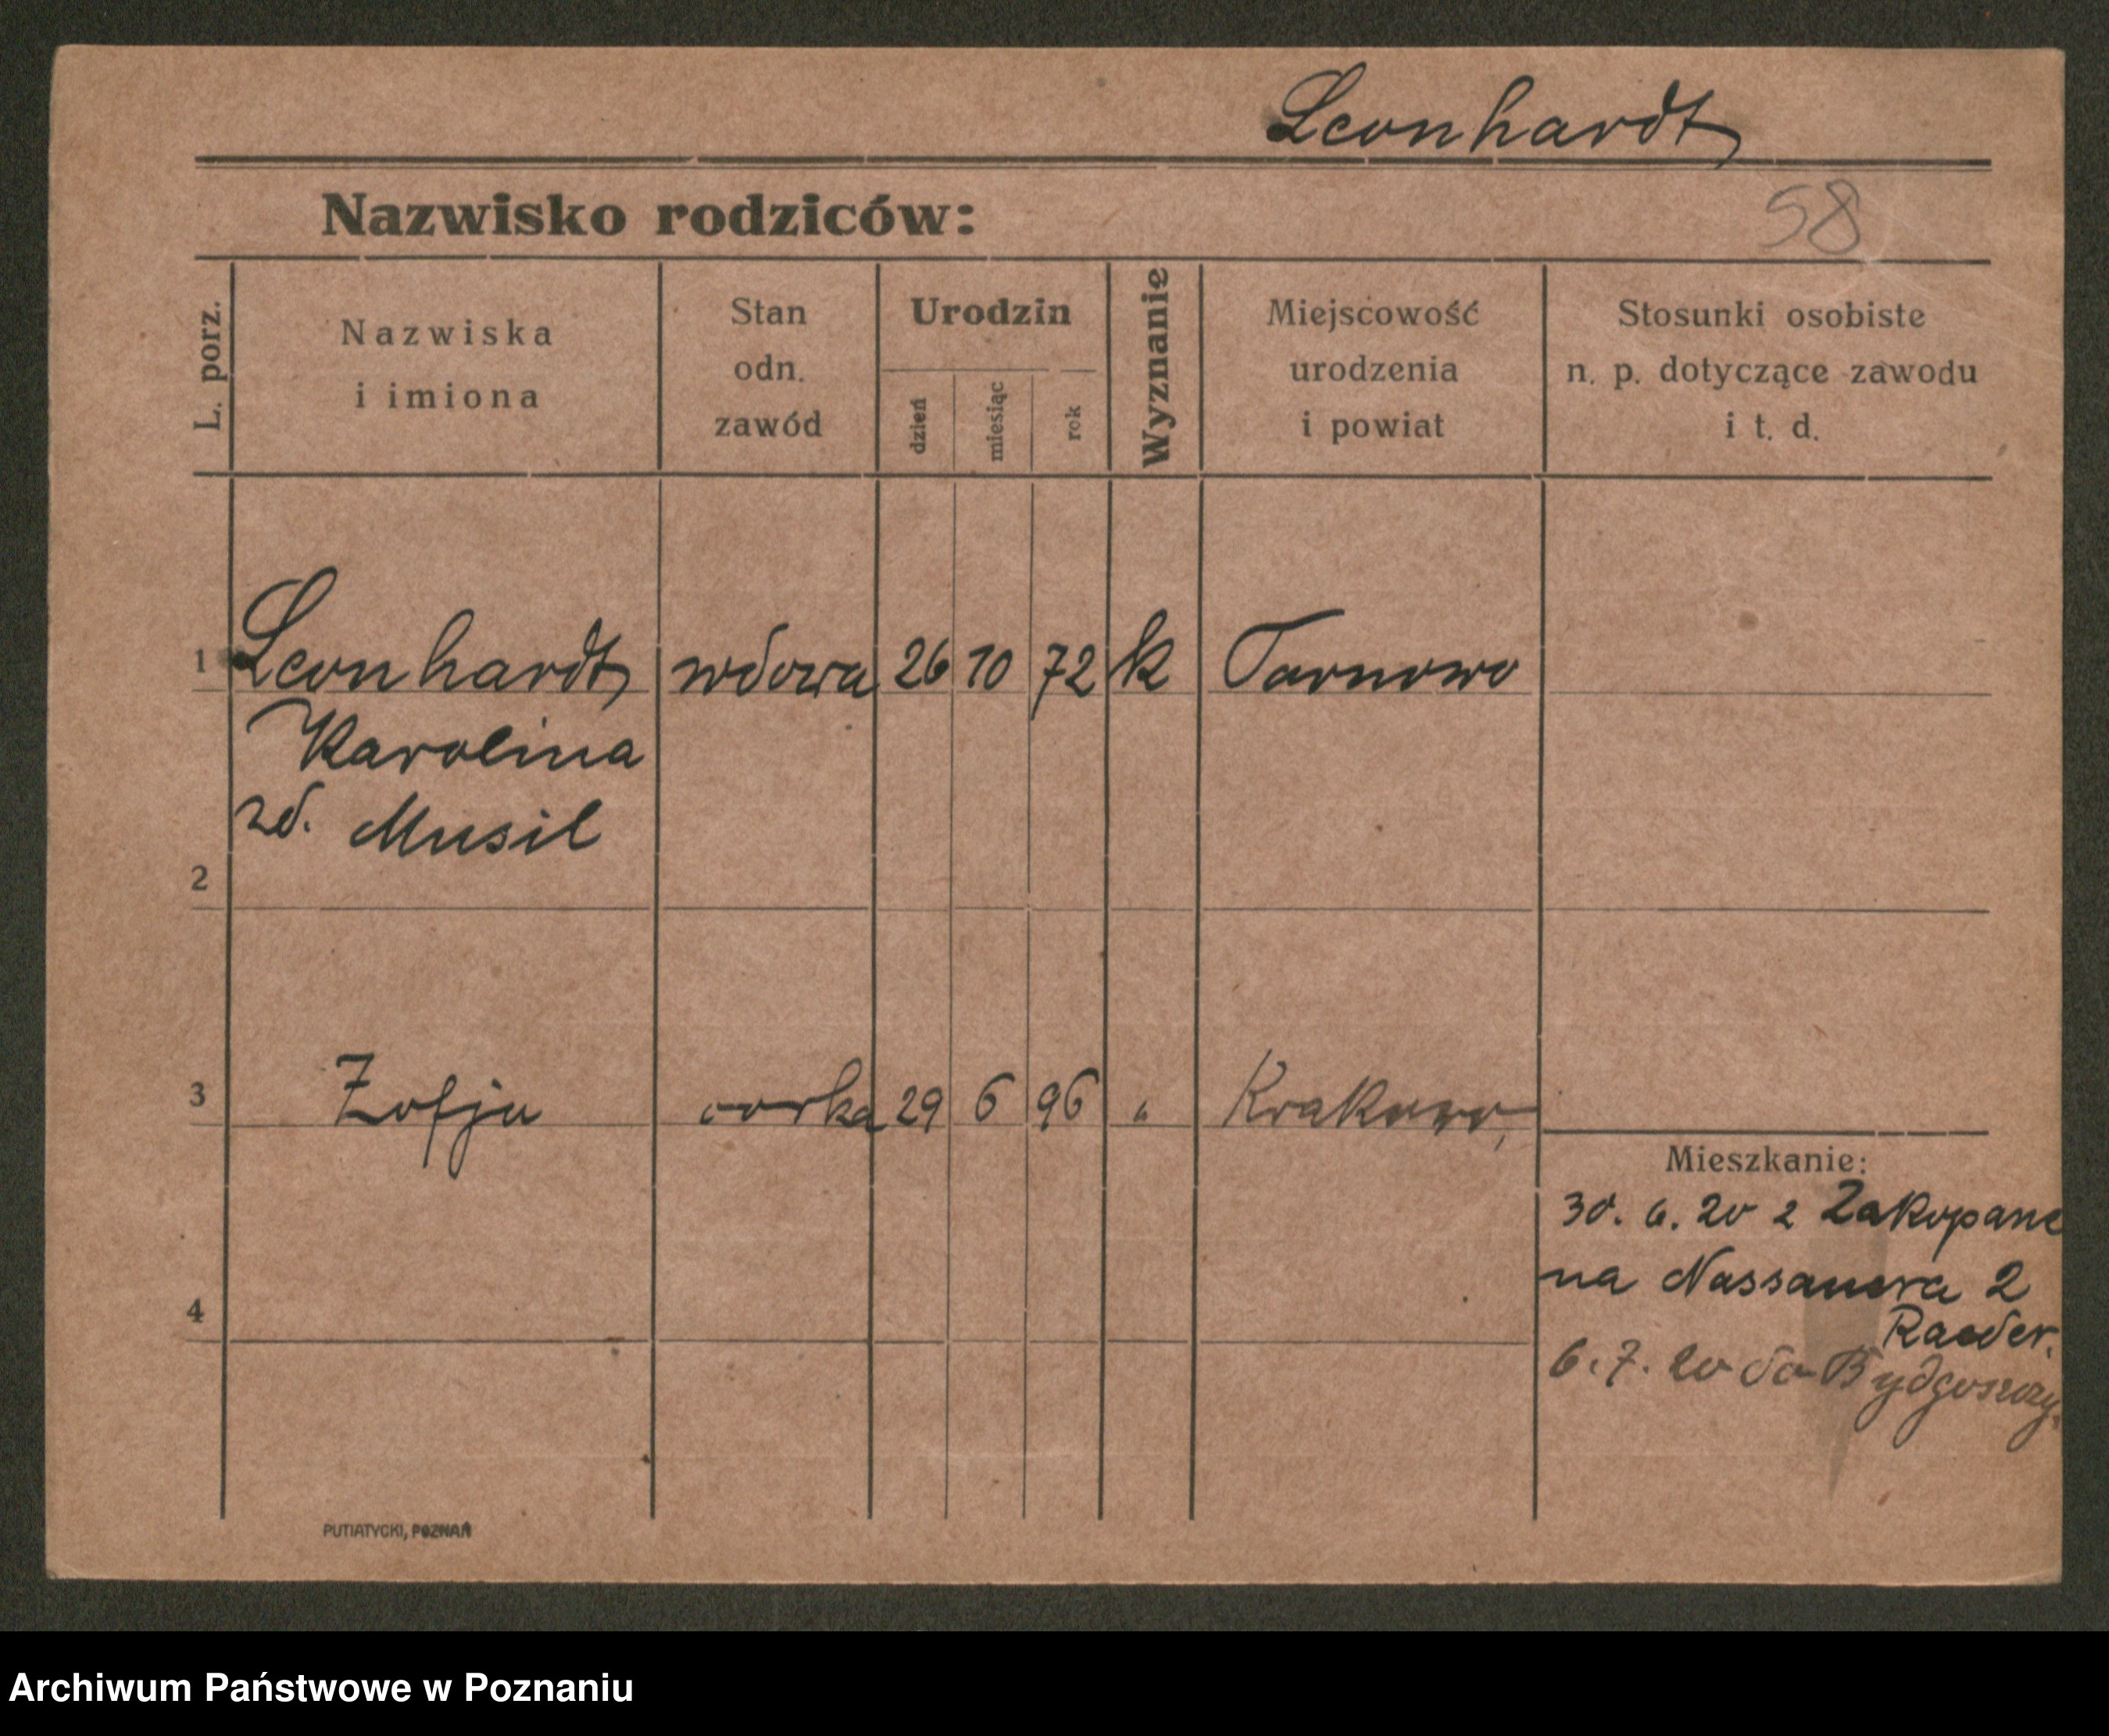 Leonhardt
Nazwisko rodziców:
58
L. porz.
Nazwiska
i imiona
Stan
odn.
zawód
Urodzin
dzień
miesiąc
rok
Wyznanie
Miejscowość
urodzenia
i powiat
Stosunki osobiste
n. p. dotyczące zawodu
i t. d.
1 Leonhardt wdowa 26 10 72 k Tarnowo
Karolina
zd. Musil
2
3 Zofja corka 29 6 96 " Krakowo,
Mieszkanie:
30. 6. 20 z Zakopane
na Nassauera 2
Raeder.
4
6. 7. 20 do Bydgoszczy.
PUTIATYCKI, POZNAŃ
Archiwum Państwowe w Poznaniu